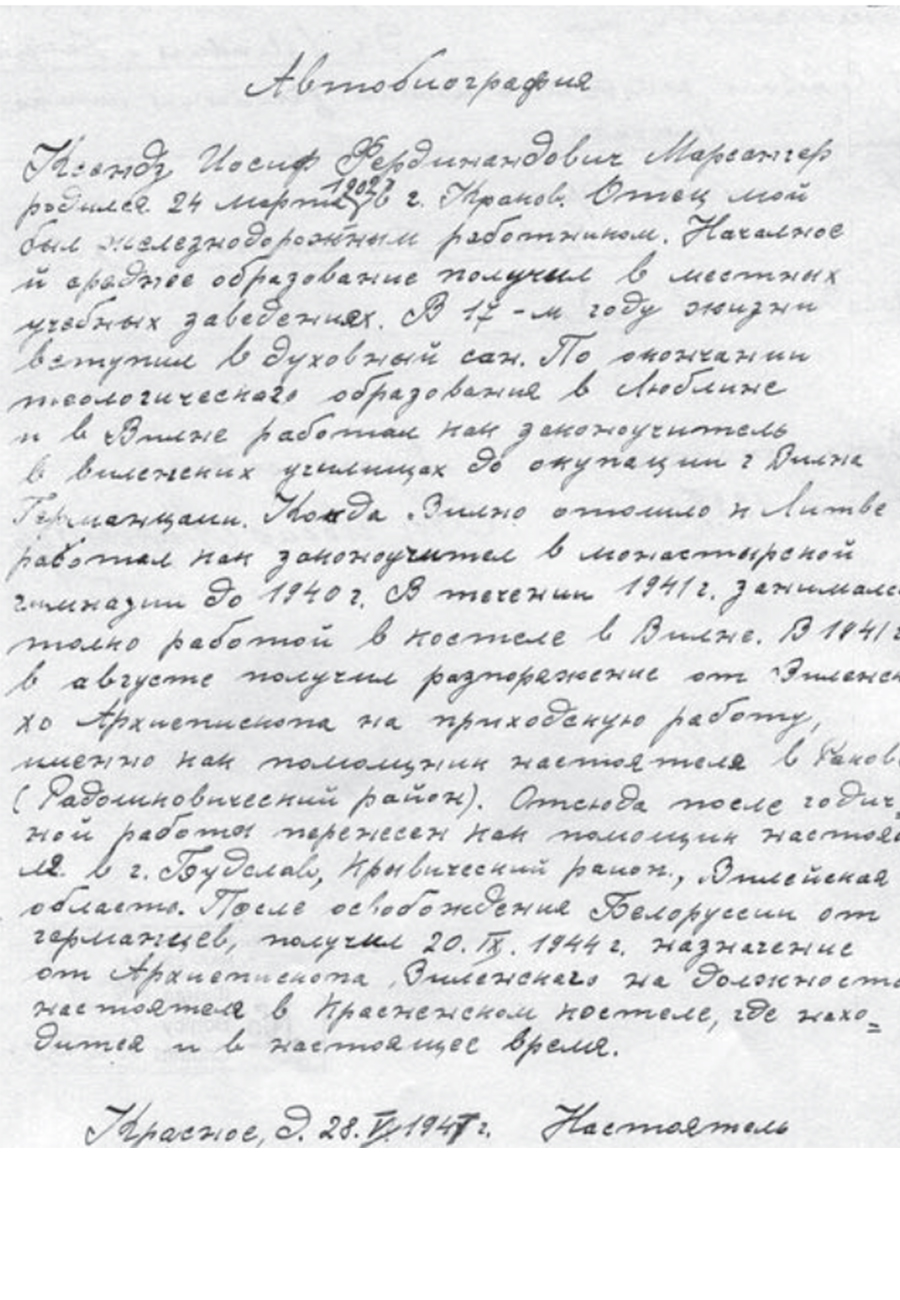 Автобиография
Ксендз Иосиф Фердинандович Марсангер
родился 24 марта 1902 г в г. Краков. Отец мой
был железнодорожным работником. Началное
й среднее образование получил в местных
учебных заведениях. В 17-м году жизни
вступил в духовный сан. По окончании
теологического образования в Люблине
и в Вилне работал как законоучитель
в виленских училищах до окупации г Вилна
Германцами. Когда Вилно отошло к Литве
работал как законоучител в монастырской
гимназии до 1940 г. В течении 1941 г. занималс
толко работой в костеле в Вилне. В 1941 г
в августе получил розпоряжение от Виленск
хо Архиепископа на приходскую работу,
именно как помощник настоятеля в Раков
(Радошковический район). Отсюда после годич=
ной работы перенесен как помощик настоя
ля в г. Будслав, Крывический район, Вилейская
область. После освобождения Белоруссии от
германцев, получил 20. IX. 1944 г. назначение
от Архиепископа Виленскаго на должность
настоятеля в Красненском костеле, где нахо=
дится и в настоящее время.
Красное, д. 28. V. 194 г. Настоятель